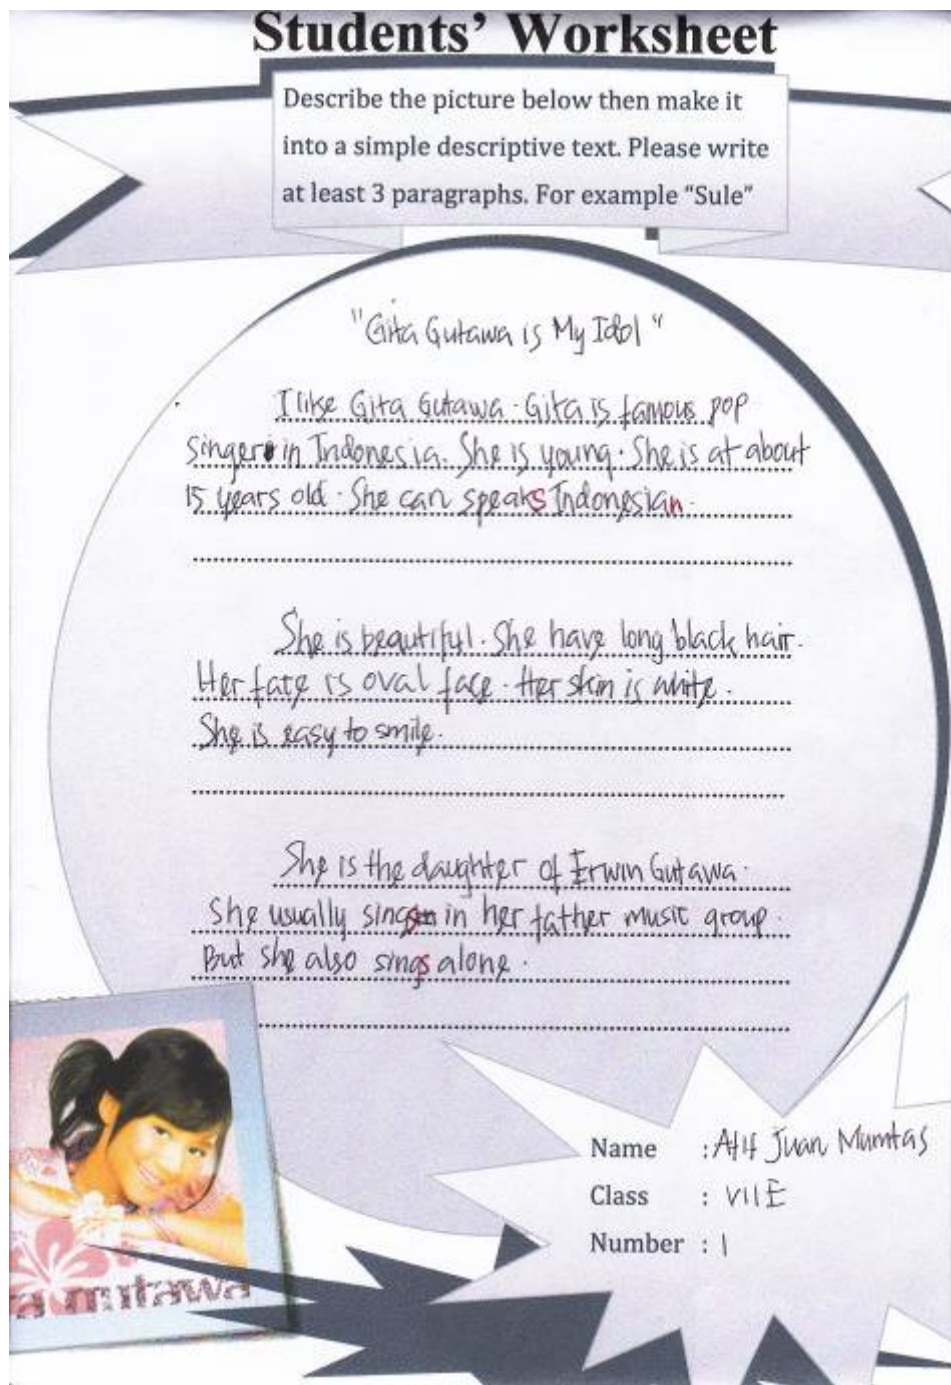 Students' Worksheet
Describe the picture below then make it
into a simple descriptive text. Please write
at least 3 paragraphs. For example "Sule"
"Gita Gutawa is My Idol"
I like Gita Gutawa. Gita is famous pop
singer in Indonesia. She is young. She is at about
15 years old. She can speaks Indonesian.
She is beautiful. She have long black hair.
Her face is oval face. Her skin is white.
She is easy to smile.
She is the daughter of Erwin Gutawa.
She usually sings in her father music group.
But she also sings alone.
Name : Afif Juan Mumtas
Class : VII E
Number : 1